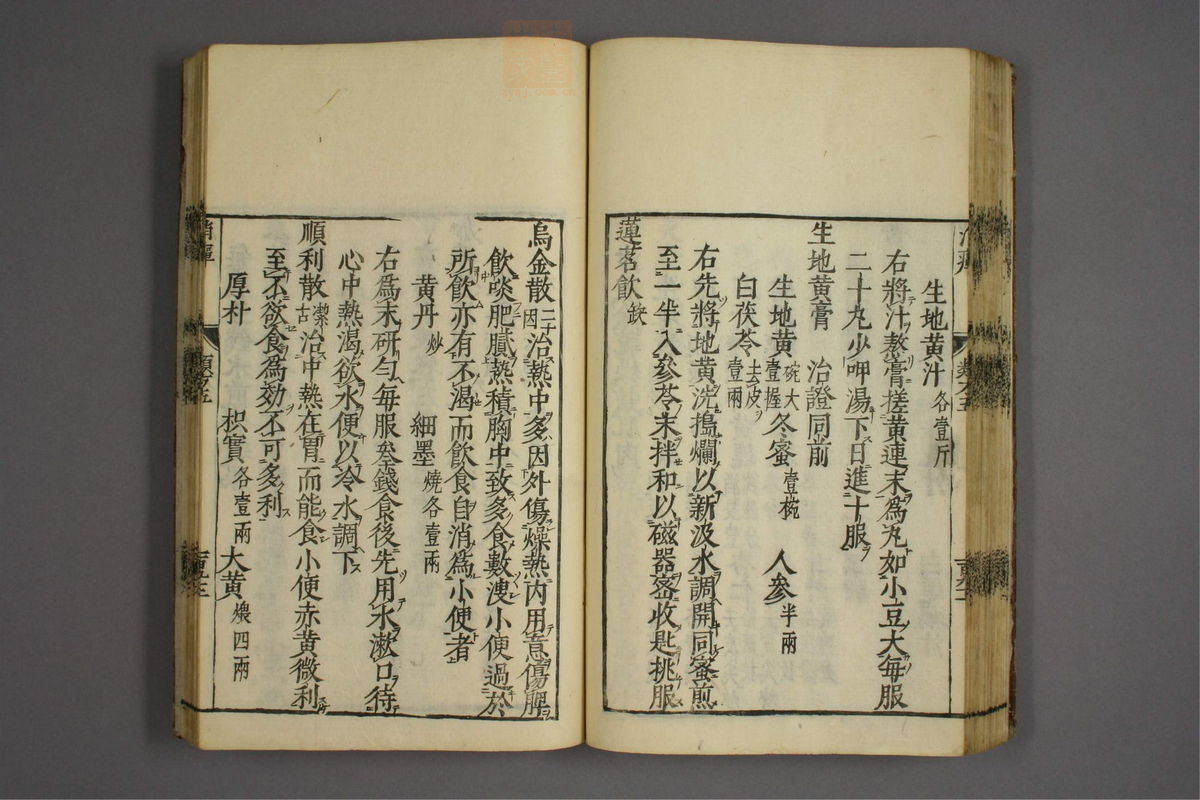 生地黄汁各壹斤
右將汁熬膏搓黄連末爲丸如小豆大每服
二十丸少呷湯下日進十服
生地黄膏 治證同前
生地黄碗大壹握 冬蜜壹椀 人参半兩
白茯苓去皮壹兩
右先將地黄洗搗爛以新汲水調開同蜜煎
至一半入參苓末拌和以磁器蜜收匙挑服
蓮茗飲 欽
烏金散三因 治熱中多因外傷燥熱内用意傷脾
飲啖肥膩熱積胸中致多食數溲小便過於
所飲亦有不渴而飲食自消爲小便者
黄丹炒 細墨燒各壹兩
右爲末研勻每服叄錢食後先用水漱口待
心中熱渴欲水便以冷水調下
順利散潔古 治中熱在胃而能食小便赤黄微利
至不欲食爲効不可多利
厚朴 枳實各壹兩 大黄煨四兩